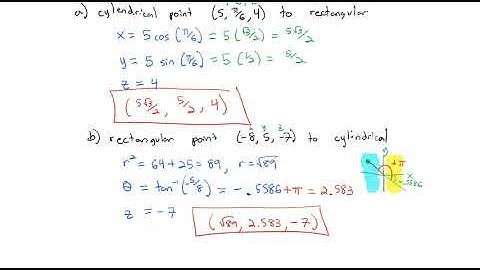 a) cylendrical point (5, π/6, 4) to rectangular
x = 5 cos (π/6) = 5 (√3/2) = 5√3/2
y = 5 sin (π/6) = 5 (1/2) = 5/2
z = 4
(5√3/2, 5/2, 4)
b) rectangular point (-8, 5, -7) to cylindrical
x y z
r² = 64 + 25 = 89, r = √89
y
+π
x
-.5586
θ = tan⁻¹(-5/8) = -.5586 + π = 2.583
z = -7
(√89, 2.583, -7)